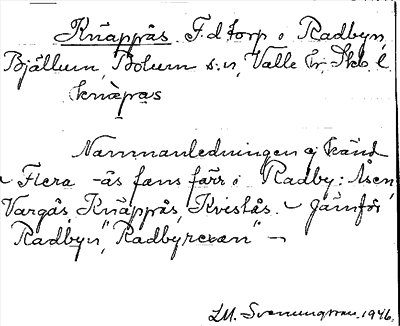 Knäppås. F.d torp i Radbyn,
Bjällum, Bolum s:n, Valle hr. Skb. l.
knæpas
Namnanledningen ej känd
- Flera -ås fans förr i Radby: Åsen,
Vargås, Knäppås, Kvistås. - Jämför
"Radbyn", "Radbyrevan" -
LM. Svenungsson. 1946.